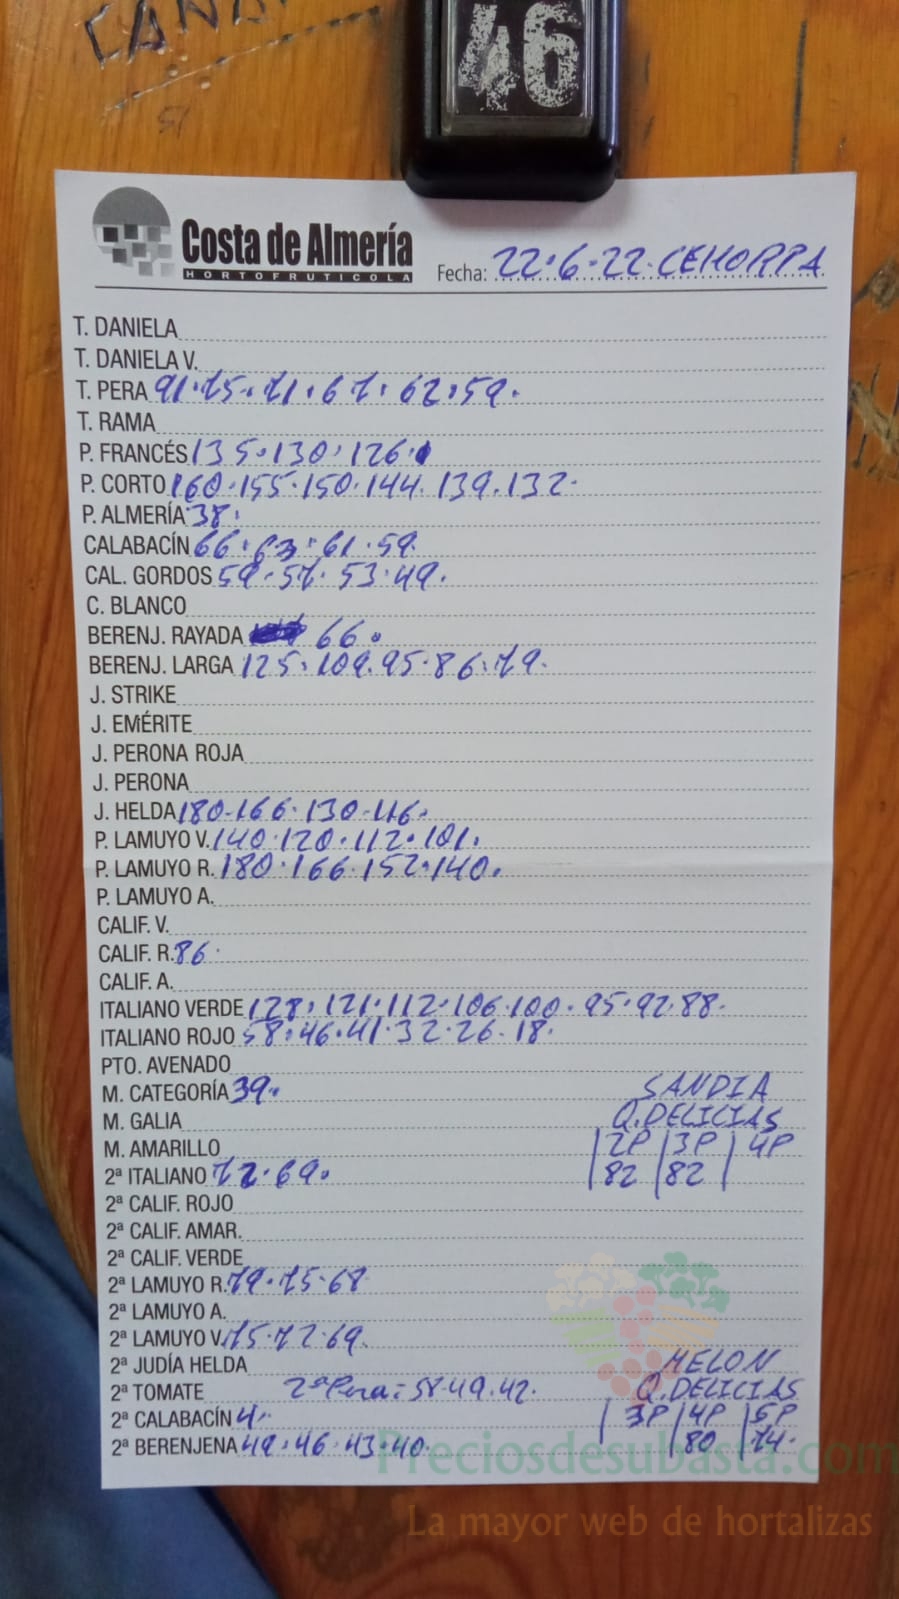 46
Costa de Almería
HORTOFRUTICOLA
Fecha: 22·6·22· CEHORPA
T. DANIELA
T. DANIELA V.
T. PERA 91·75·71·67·62·59·
T. RAMA
P. FRANCÉS 135·130·126·
P. CORTO 160·155·150·144·139·132·
P. ALMERÍA 38·
CALABACÍN 66·63·61·59·
CAL. GORDOS 59·57·53·49·
C. BLANCO
BERENJ. RAYADA 66·
BERENJ. LARGA 125·109·95·86·79·
J. STRIKE
J. EMÉRITE
J. PERONA ROJA
J. PERONA
J. HELDA 180·166·130·116·
P. LAMUYO V. 140·120·112·101·
P. LAMUYO R. 180·166·152·140·
P. LAMUYO A.
CALIF. V.
CALIF. R. 86·
CALIF. A.
ITALIANO VERDE 128·121·112·106·100·95·92·88·
ITALIANO ROJO 58·46·41·32·26·18·
PTO. AVENADO
M. CATEGORÍA 39· SANDIA
M. GALIA Q.DELICIAS
M. AMARILLO |2P |3P |4P
2ª ITALIANO 72·69· |82 |82 |
2ª CALIF. ROJO
2ª CALIF. AMAR.
2ª CALIF. VERDE
2ª LAMUYO R. 79·75·68
2ª LAMUYO A.
2ª LAMUYO V. 75·72·69·
2ª JUDÍA HELDA MELON
2ª TOMATE 2ª Pera: 58·49·42· Q.DELICIAS
2ª CALABACÍN 4· | 3P |4P |5P
2ª BERENJENA 49·46·43·40· |80 |74·
Preciosdesubasta.com
La mayor web de hortalizas